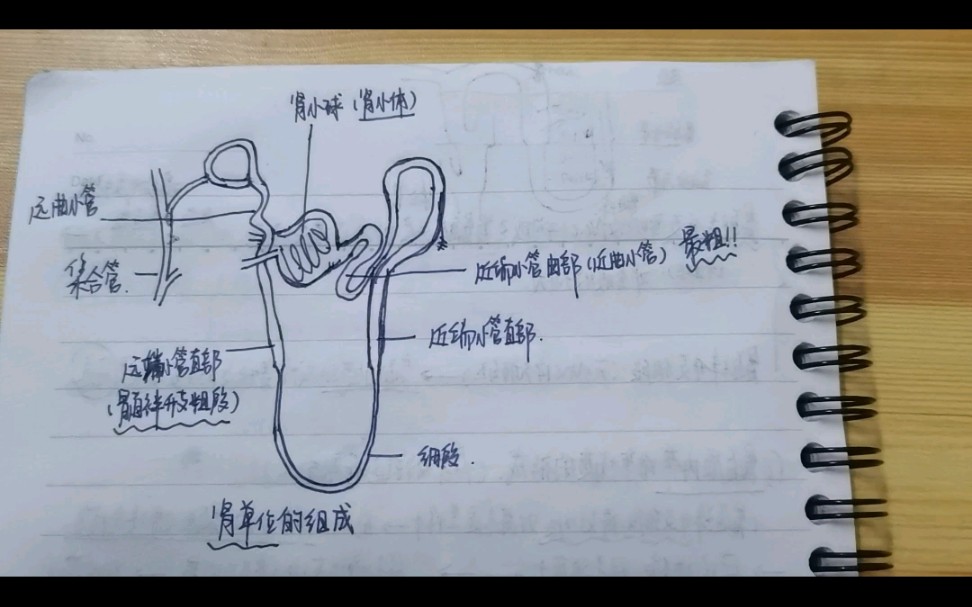 肾小球(肾小体)
远曲小管
集合管.
近端小管曲部(近曲小管) 最粗!!
近端小管直部.
远端小管直部
(髓袢升支粗段)
细段.
肾单位的组成